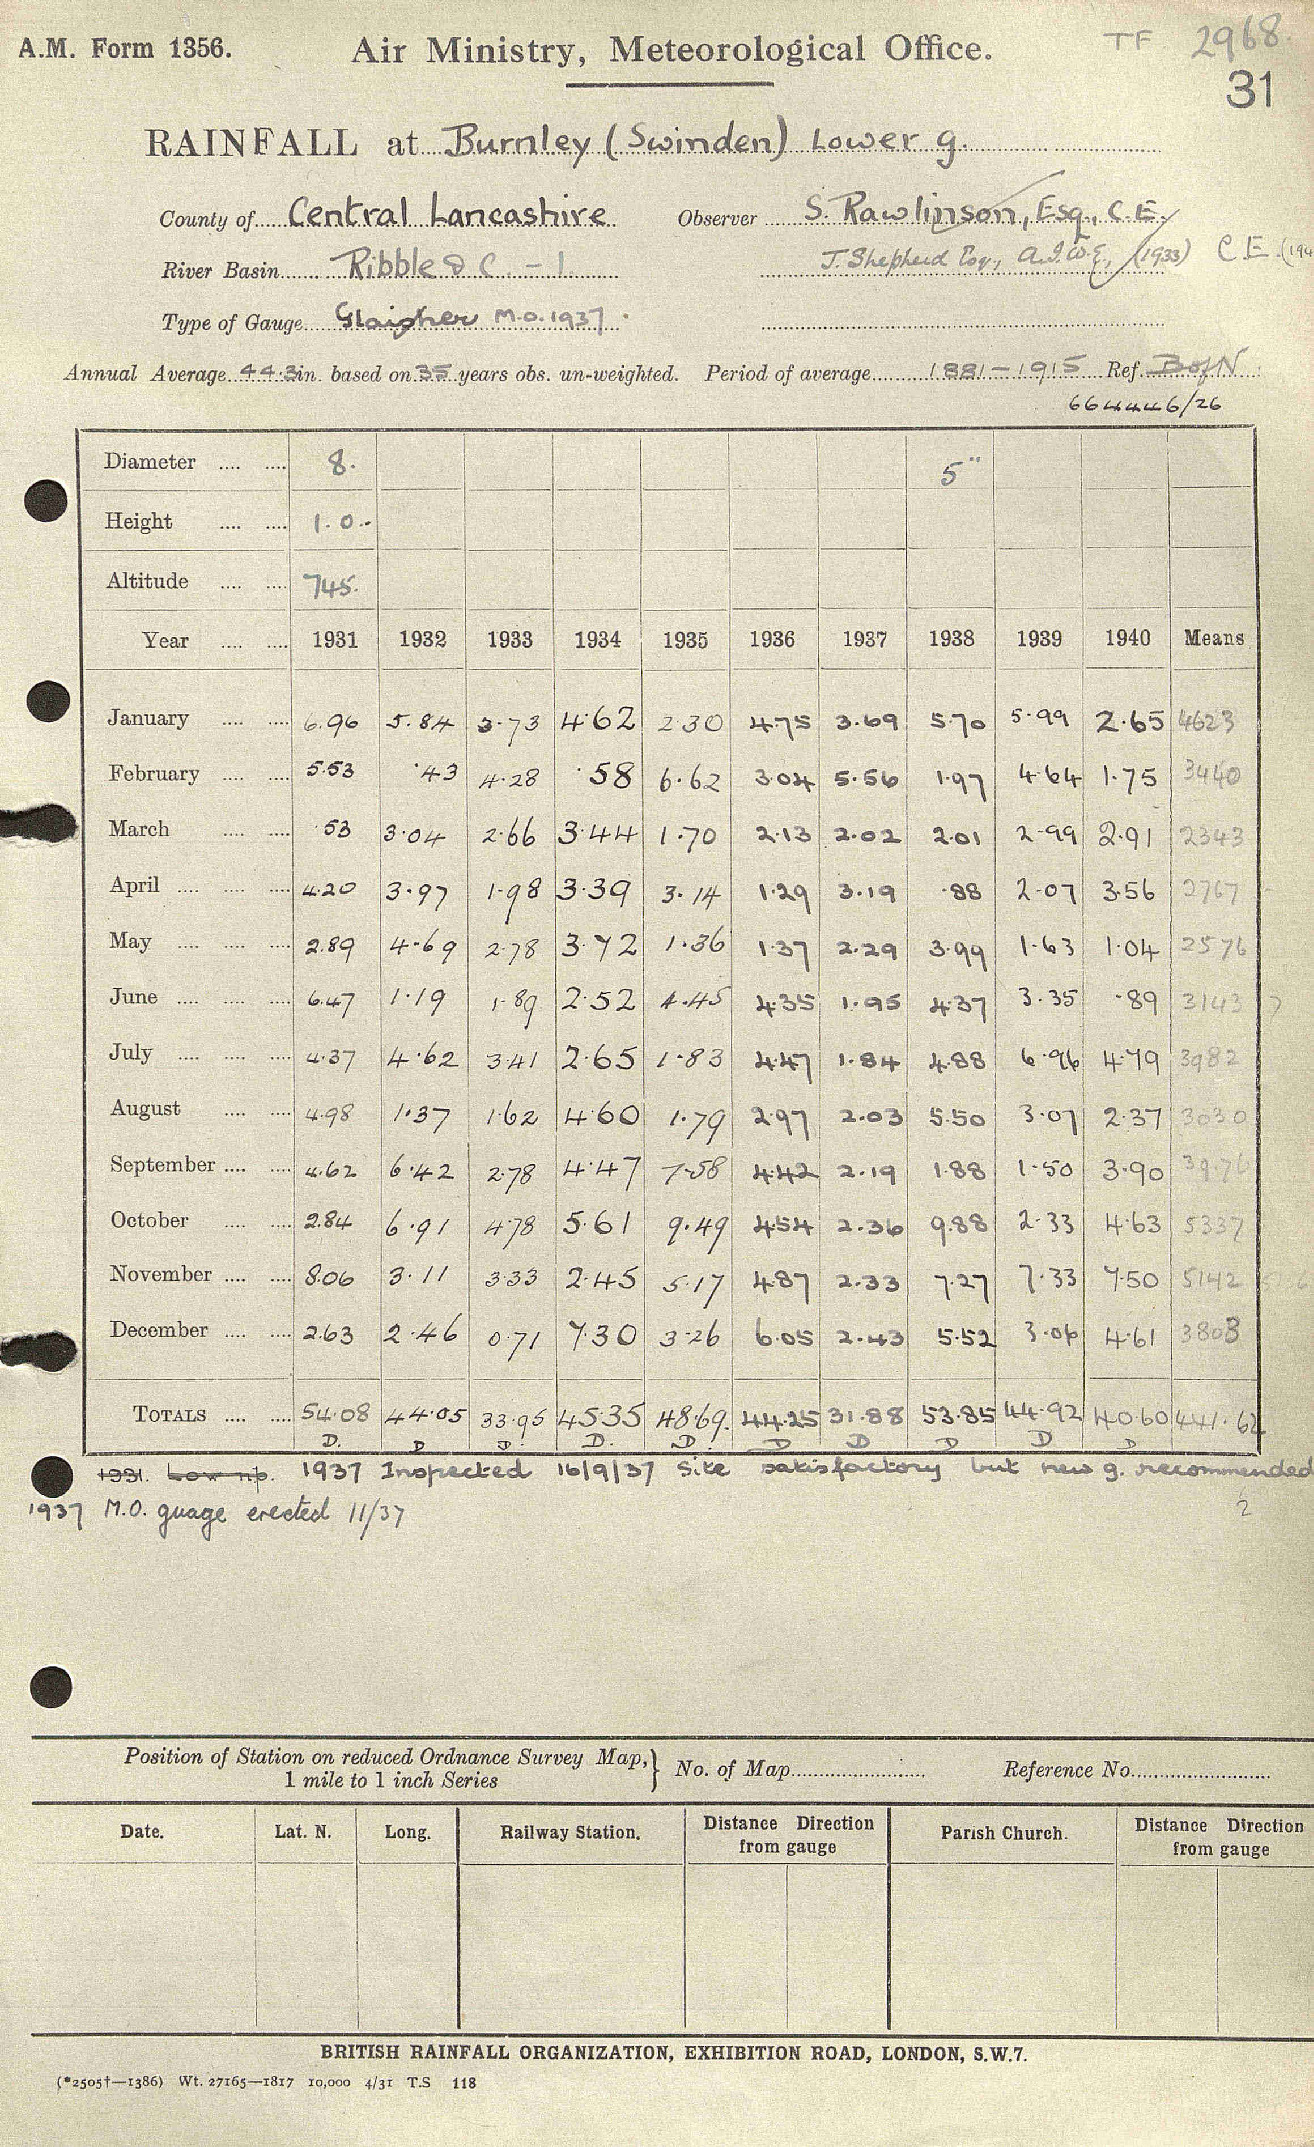 A.M. Form 1356. Air Ministry, Meteorological Office. TF 2968.
31
RAINFALL at Burnley (Swinden) Lower g.
County of Central Lancashire Observer S. Rawlinson, Esq., C.E.
River Basin Ribble & C. - 1 J. Shepherd Esq., (1933) C.E.
Type of Gauge Glaisher M.O. 1937.
Annual Average 44.3 in. based on 35 years obs. un-weighted. Period of average 1881-1915 Ref. B of N
664446/26
Diameter .... .... 8. 5"
Height .... .... 1.0
Altitude .... .... 745.
Year .... .... 1931 1932 1933 1934 1935 1936 1937 1938 1939 1940 Means
January .... .... 6.96 5.84 3.73 4.62 2.30 4.75 3.69 5.70 5.99 2.65 4623
February .... .... 5.53 .43 4.28 .58 6.62 3.04 5.56 1.97 4.64 1.75 3440
March .... .... .53 3.04 2.66 3.44 1.70 2.13 2.02 2.01 2.99 2.91 2343
April .... .... .... 4.20 3.97 1.98 3.39 3.14 1.29 3.19 .88 2.07 3.56 2767
May .... .... .... 2.89 4.69 2.78 3.72 1.36 1.37 2.29 3.99 1.63 1.04 2576
June .... .... .... 6.47 1.19 1.89 2.52 4.45 4.35 1.95 4.37 3.35 .89 3143
July .... .... .... 4.37 4.62 3.41 2.65 1.83 4.47 1.84 4.88 6.96 4.79 3982
August .... .... 4.98 1.37 1.62 4.60 1.79 2.97 2.03 5.50 3.07 2.37 3030
September .... .... 4.62 6.42 2.78 4.47 7.58 4.42 2.19 1.88 1.50 3.90 3976
October .... .... 2.84 6.91 4.78 5.61 9.49 4.54 2.36 9.88 2.33 4.63 5337
November .... .... 8.06 3.11 3.33 2.45 5.17 4.87 2.33 7.27 7.33 7.50 5142
December .... .... 2.63 2.46 0.71 7.30 3.26 6.05 2.43 5.52 3.06 4.61 3803
TOTALS .... .... 54.08 44.05 33.95 45.35 48.69. 44.25 31.88 53.85 44.92 40.60 441.62
D. D D. D. D. D D D D D
1931. Low np. 1937 Inspected 16/9/37 Site satisfactory but new g. recommended
1937 M.O. guage erected 11/37
2
Position of Station on reduced Ordnance Survey Map, 1 mile to 1 inch Series } No. of Map Reference No.
Date. Lat. N. Long. Railway Station. Distance Direction from gauge Parish Church. Distance Direction from gauge
BRITISH RAINFALL ORGANIZATION, EXHIBITION ROAD, LONDON, S.W.7.
(*2505†—1386) Wt. 27165—1817 10,000 4/31 T.S 118